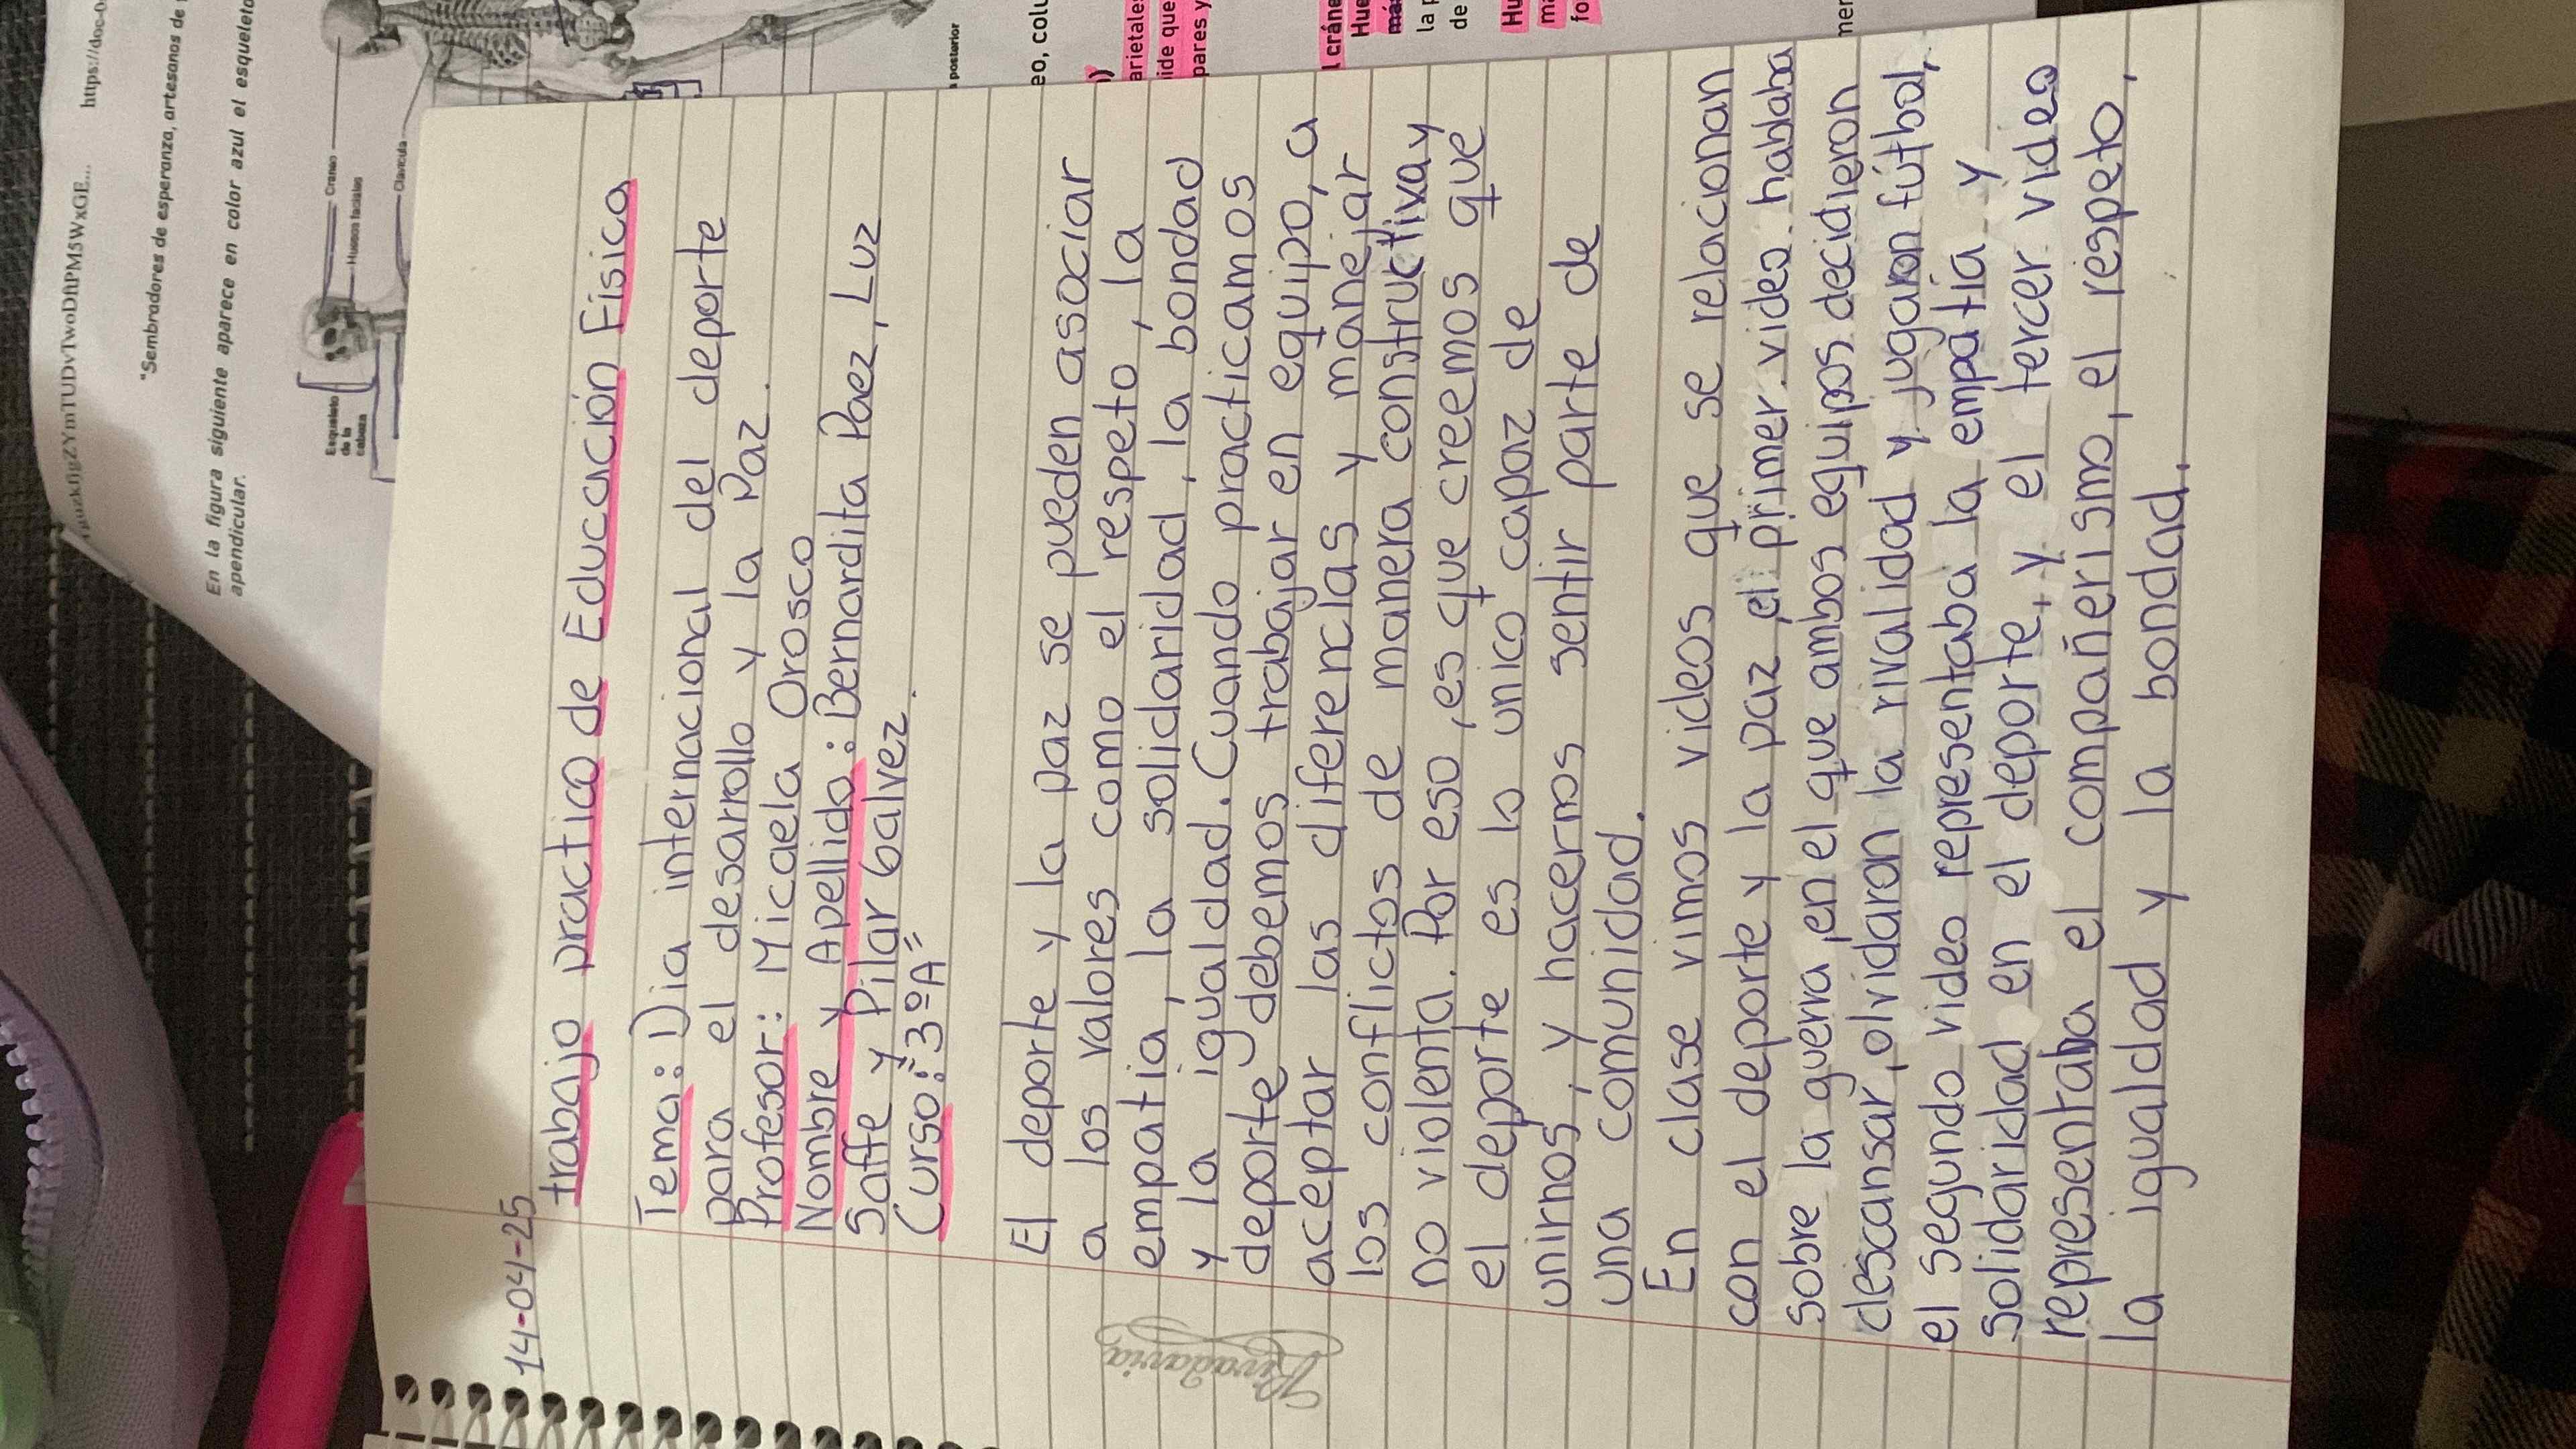 14-04-25
trabajo practico de Educación Física
Tema: Dia internacional del deporte
para el desarrollo y la Paz.
Profesor: Micaela Orosco
Nombre y Apellido: Bernardita Paez, Luz
Saffe y Pilar Galvez.
Curso: 3º"A"
El deporte y la paz se pueden asociar
a los valores como el respeto, la
empatia, la solidaridad, la bondad
y la igualdad. Cuando practicamos
deporte debemos trabajar en equipo, a
aceptar las diferencias y manejar
los conflictos de manera constructiva y
no violenta. Por eso, es que creemos que
el deporte es lo unico capaz de
unirnos, y hacernos sentir parte de
una comunidad.
En clase vimos videos que se relacionan
con el deporte y la paz, el primer video hablaba
sobre la guerra, en el que ambos equipos decidieron
descansar, olvidaron la rivalidad y jugaron fútbol,
el segundo video representaba la empatia y
solidaridad en el deporte, y el tercer video
representaba el compañerismo, el respeto,
la igualdad y la bondad.
Rivadavia
https://doc-0
"Sembradores de esperanza, artesanos de
En la figura siguiente aparece en color azul el esqueleto
apendicular.
Esqueleto
de la
cabeza
Craneo
Huesos faciales
Clavicula
posterior
eo, colu
arietales
ide que
pares y
l cráne
Hue
más
la p
de
Hu
má
fo
mer